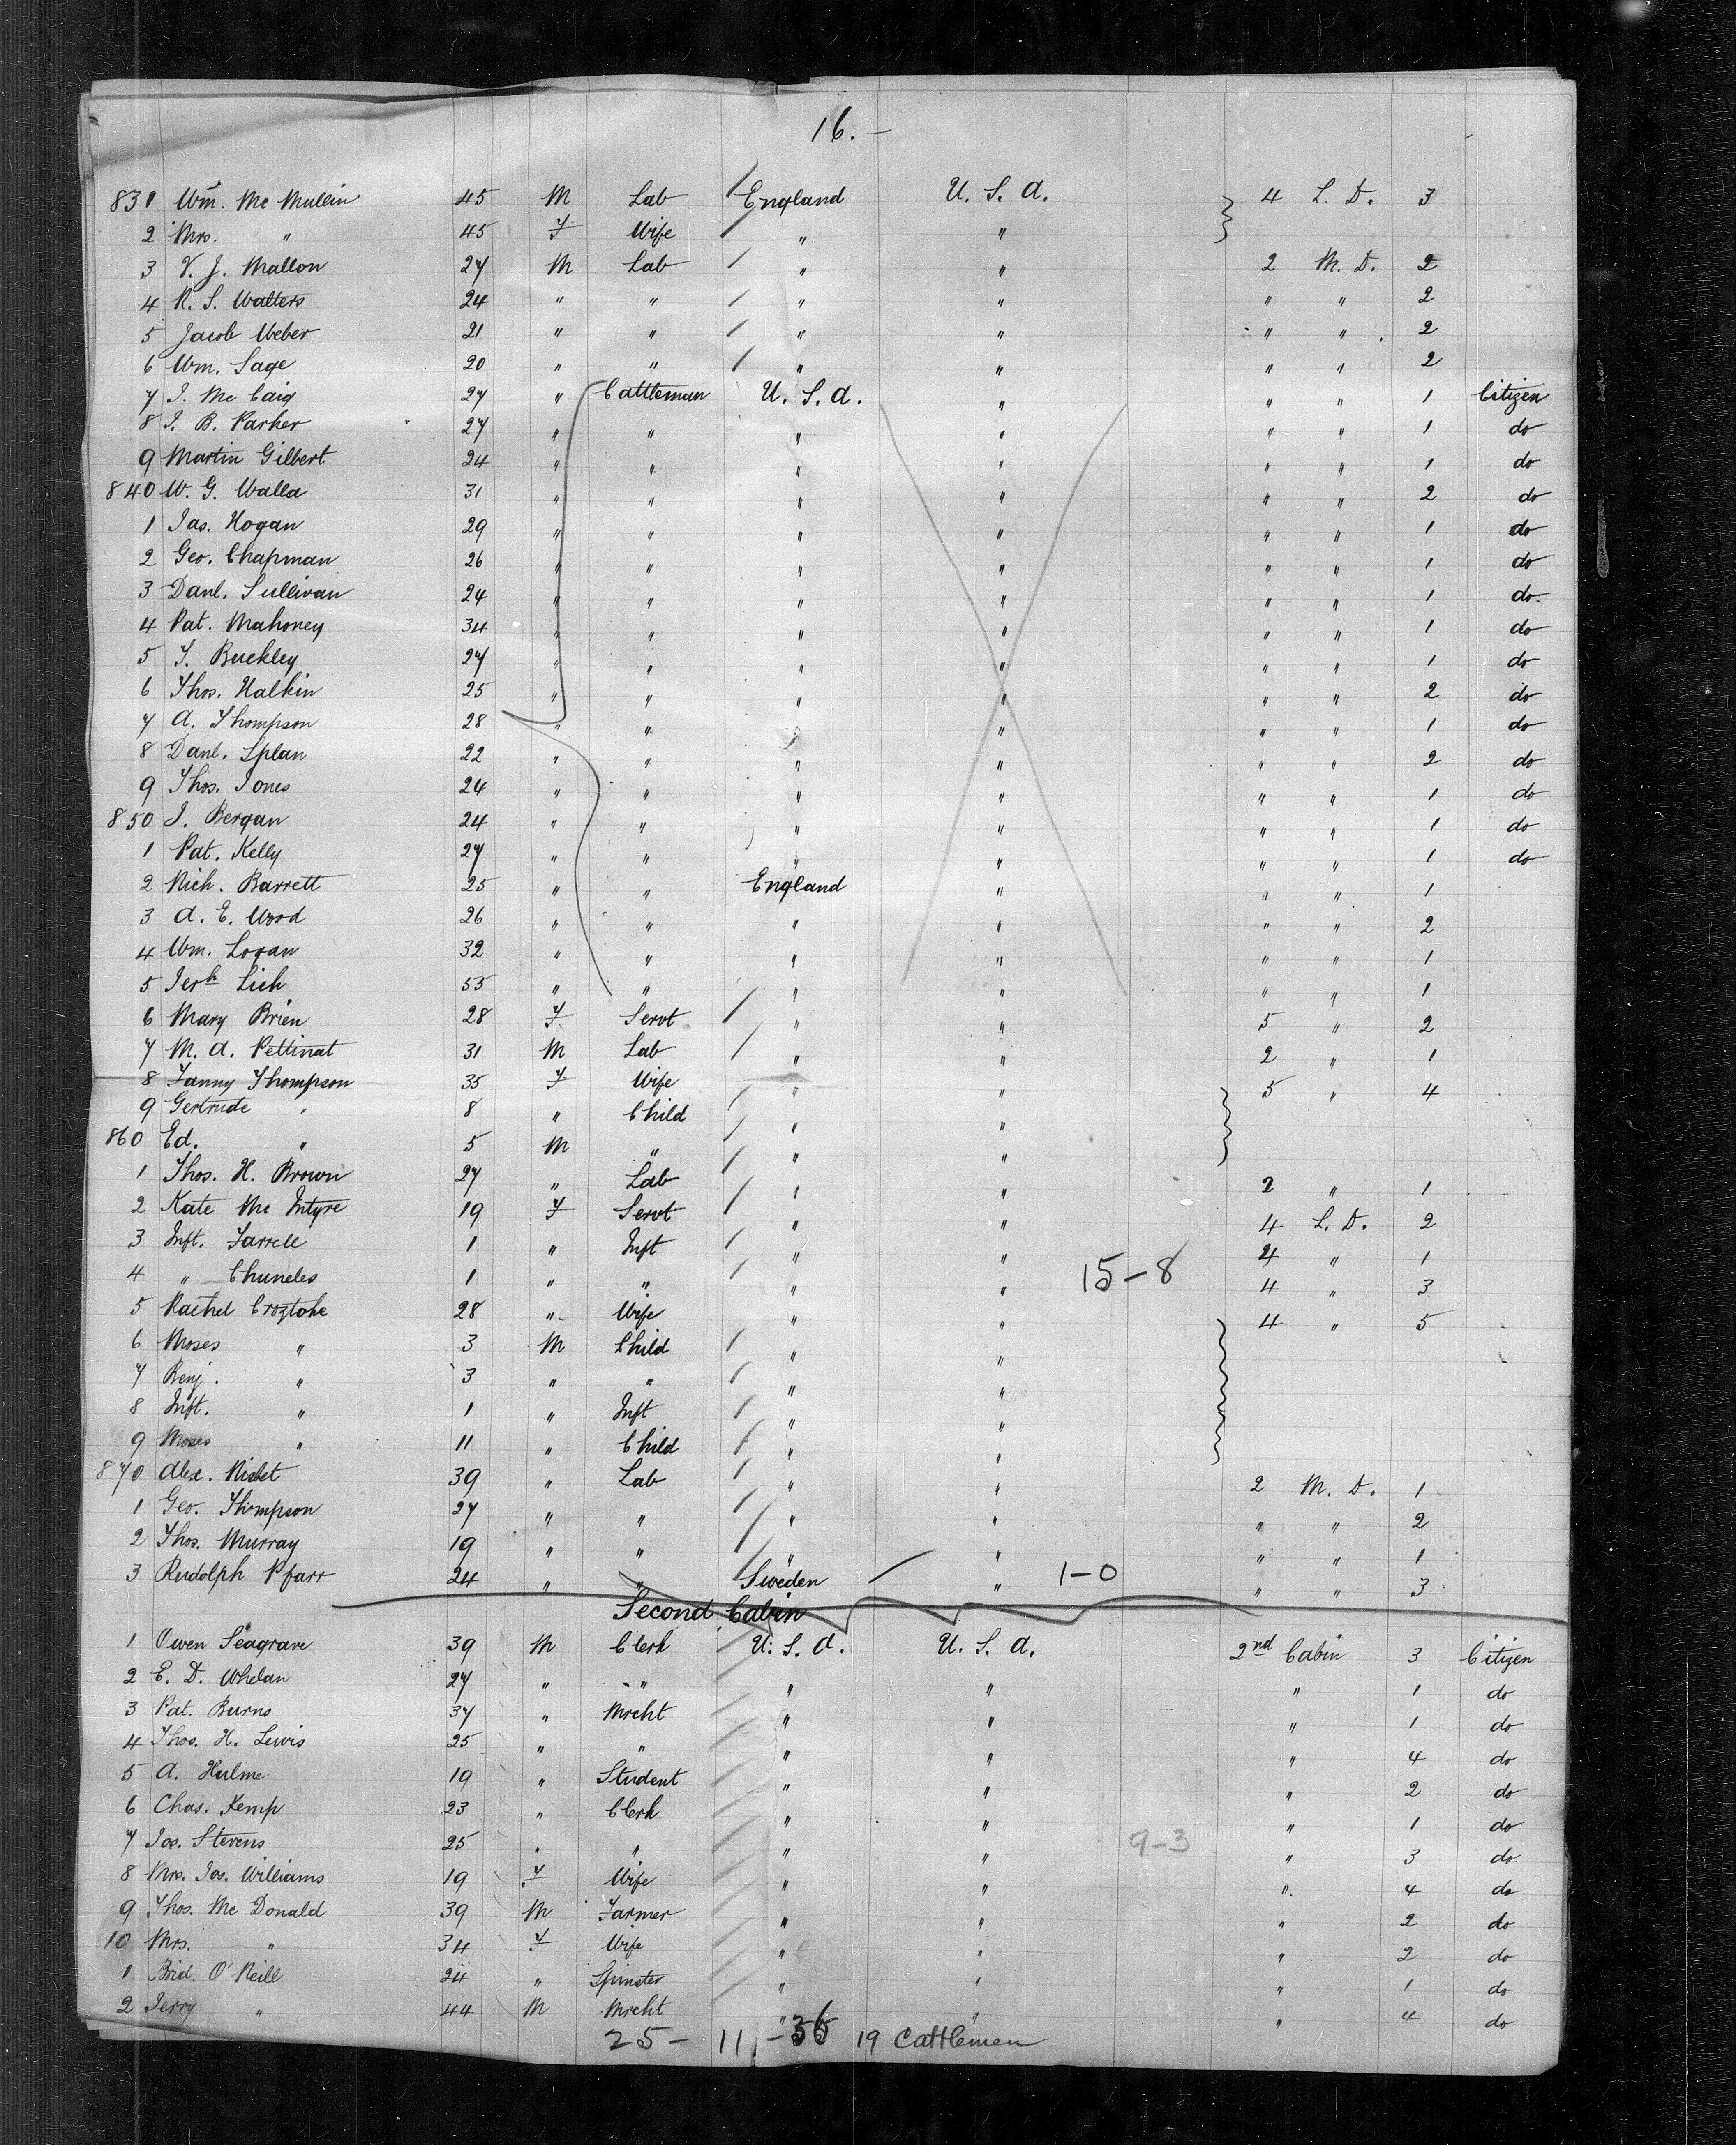 16. —
831 Wm. Mc Mullin 45 M Lab England U. S. A. 4 L. D. 3
2 Mrs. " 45 F Wife " "
3 V. J. Mallon 27 M Lab " " 2 M. D. 2
4 R. S. Walters 24 " " " " " " 2
5 Jacob Weber 21 " " " " " " 2
6 Wm. Sage 20 " " " " " " 2
7 J. Mc Caig 27 " Cattleman U. S. A. " " " 1 Citizen
8 J. B. Parker 27 " " " " " " 1 do
9 Martin Gilbert 24 " " " " " " 1 do
840 W. G. Walla 31 " " " " " " 2 do
1 Jas. Hogan 29 " " " " " " 1 do
2 Geo. Chapman 26 " " " " " " 1 do
3 Danl. Sullivan 24 " " " " " " 1 do.
4 Pat. Mahoney 34 " " " " " " 1 do
5 T. Buckley 27 " " " " " " 1 do
6 Thos. Halkin 25 " " " " " " 2 do
7 A. Thompson 28 " " " " " " 1 do
8 Danl. Splan 22 " " " " " " 2 do
9 Thos. Jones 24 " " " " " " 1 do
850 J. Bergan 24 " " " " " " 1 do
1 Pat. Kelly 27 " " " " " " 1 do
2 Rich. Barrett 25 " " England " " " 1
3 A. E. Wood 26 " " " " " " 2
4 Wm. Logan 32 " " " " " " 1
5 Jerh Lich 55 " " " " " " 1
6 Mary Brien 28 F Servt " " 5 " 2
7 M. A. Pettinat 31 M Lab " " 2 " 1
8 Fanny Thompson 35 F Wife " " 5 " 4
9 Gertrude " 8 " Child " "
860 Ed. " 5 M " " "
1 Thos. H. Brown 27 " Lab " " 2 " 1
2 Kate Mc Intyre 19 F Servt " " 4 L. D. 2
3 Inft. Farrell 1 " Inft " " 4 " 1
4 " Chuneles 1 " " " " 15-8 4 " 3
5 Rachel 28 " Wife " " 4 " 5
6 Moses " 3 M Child " "
7 Benj. " 3 " " " "
8 Inft. " 1 " Inft " "
9 Moses " 11 " Child " "
870 Alex. Nisbet 39 " Lab " " 2 M. D. 1
1 Geo. Thompson 27 " " " " " " 2
2 Thos. Murray 19 " " " " " " 1
3 Rudolph Pfarr 24 " " Sweden " 1-0 " " 3
Second Cabin
1 Owen Seagrave 39 M Clerk U. S. A. U. S. A. 2nd Cabin 3 Citizen
2 E. D. Whelan 27 " " " " " 1 do
3 Pat. Burns 37 " Mrcht " " " 1 do
4 Thos. H. Lewis 25 " " " " " 4 do
5 A. Hulme 19 " Student " " " 2 do
6 Chas. Kemp 23 " Clerk " " " 1 do
7 Jos. Stevens 25 " " " " 9-3 " 3 do
8 Mrs. Jos. Williams 19 F Wife " " " 4 do
9 Thos. Mc Donald 39 M Farmer " " " 2 do
10 Mrs. " 34 F Wife " " " 2 do
1 Brid. O'Neill 24 " Spinster " " " 1 do
2 Jerry " 44 M Mrcht " " " 4 do
25 - 11 - 36 19 Cattlemen